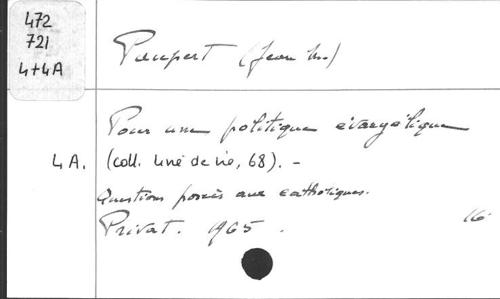 472
721
4+4A
Paupert (Jean M.)
Pour une politique évangélique
4A.
(coll. Uné de vie, 68). -
Questions posées aux catholiques.
Privat. 1965.
16